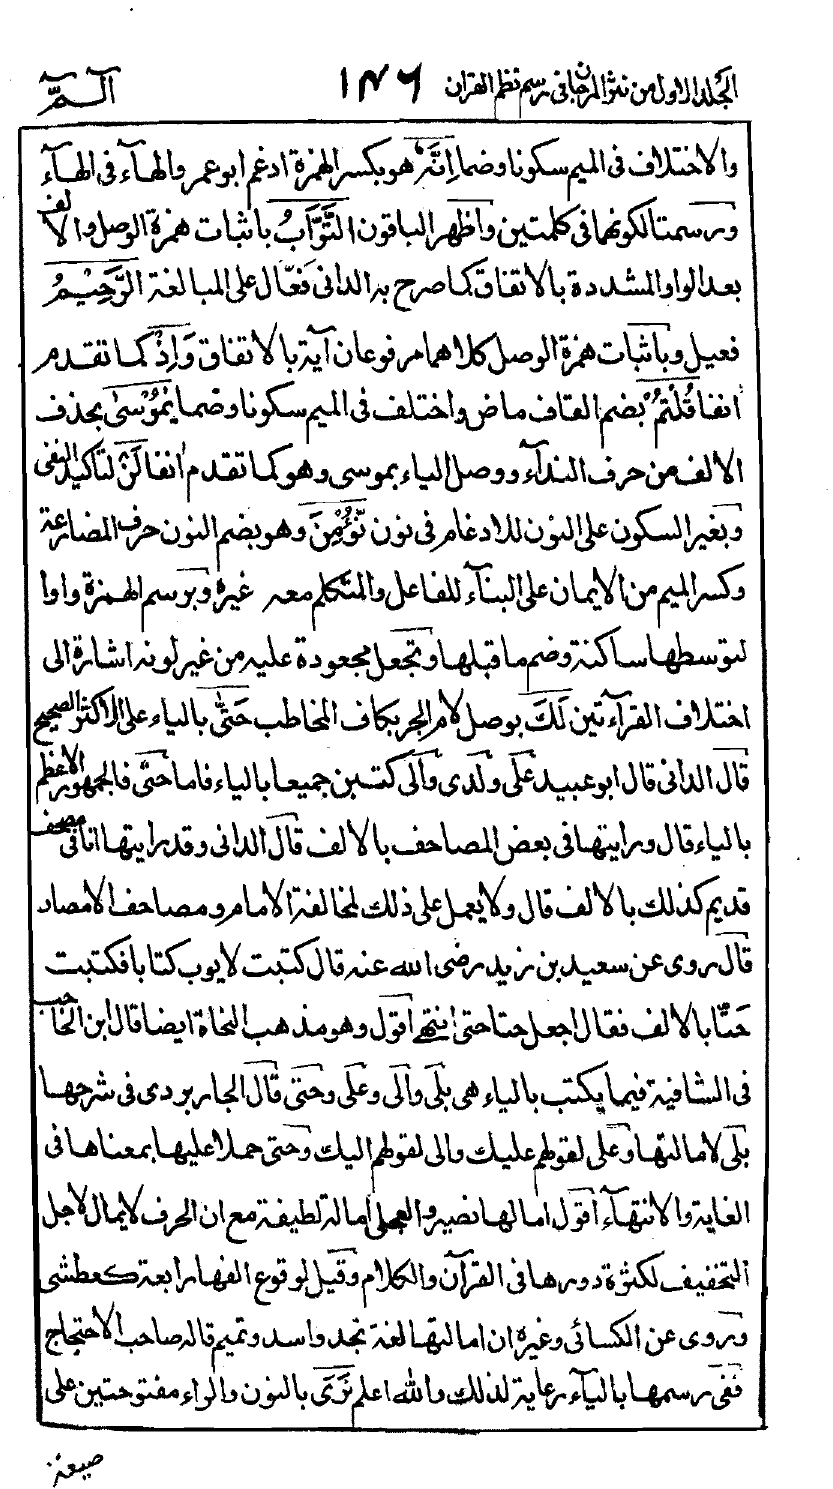 الجلد الاول من نثر المرجان فى رسم نظم القران ١٤٦ الــمّ
والاختلاف فى الميم سكونا وضما اِنَّهٗ هو بكسر الهمزة ادغم ابو عمر والهآء فى الهآء
ورسمتا لكونهما فى كلمتين واظهر الباقون التَّوَّابُ باثبات همزة الوصل والالف
بعد الواو المشددة بالاتفاق كما صرح به الدانى فَعّال على المبالغة الرَّحِيْمُ
فعيل وباثبات همزة الوصل كلاهما مرفوعان آية بالاتفاق وَاِذْ كما تقدم
انفا قُلْتُمْ بضم القاف ماض واختلف فى الميم سكونا وضما يٰمُوْسٰى بحذف
الالف من حرف النداۤء ووصل الياء بموسى وهو كما تقدم انفا لَنْ لتاكيد النفى
وبغير السكون على النون للادغام فى نون نُّؤْمِنَ وهو بضم النون حرف المضارعة
وكسر الميم من الايمان على البناۤء للفاعل والمتكلم معه غيره وبرسم الهمزة واوا
لتوسطها ساكنة وضم ما قبلها وتجعل مجعودة عليه من غير لونه اشارة الى
اختلاف القرآءتين لَكَ بوصل لام الجر بكاف المخاطب حَتّٰى بالياء على الاكثر الصحيح
قال الدانى قال ابو عبيد على ولدى والى كتبن جميعا بالياء فاما حتى فالجمهور الاعظم
بالياء قال ورايتها فى بعض المصاحف بالالف قال الدانى وقد رايتها انا فى مصحف
قديم كذلك بالالف قال ولا يعمل على ذلك لمخالفة الامام ومصاحف الامصار
قال روى عن سعيد بن زيد رضى الله عنه قال كتبت لايوب كتابا فكتبت
حتّا بالالف فقال اجعل حتا حتى انتهى اقول وهو مذهب النحاة ايضا قال ابن الحاجب
فى الشافية فيما يكتب بالياء هى بلى والى وعلى وحتى قال الجاربردى فى شرحها
بلى لامالتها وعلى لقولهم عليك والى لقولهم اليك وحتى حملا عليها بمعناها فى
الغاية والانتهآء اقول امالها نصير والعجلى امالة لطيفة مع ان الحرف لا يمال لاجل
التخفيف لكثرة دورها فى القرآن والكلام وقيل لوقوع الفها رابعة كعطشى
وروى عن الكسائى وغيره ان امالتها لغة نجد واسد وتميم قاله صاحب الاحتجاج
ففى رسمها بالياۤء رعاية لذلك والله اعلم نَرَى بالنون والراء مفتوحتين على
صيغة